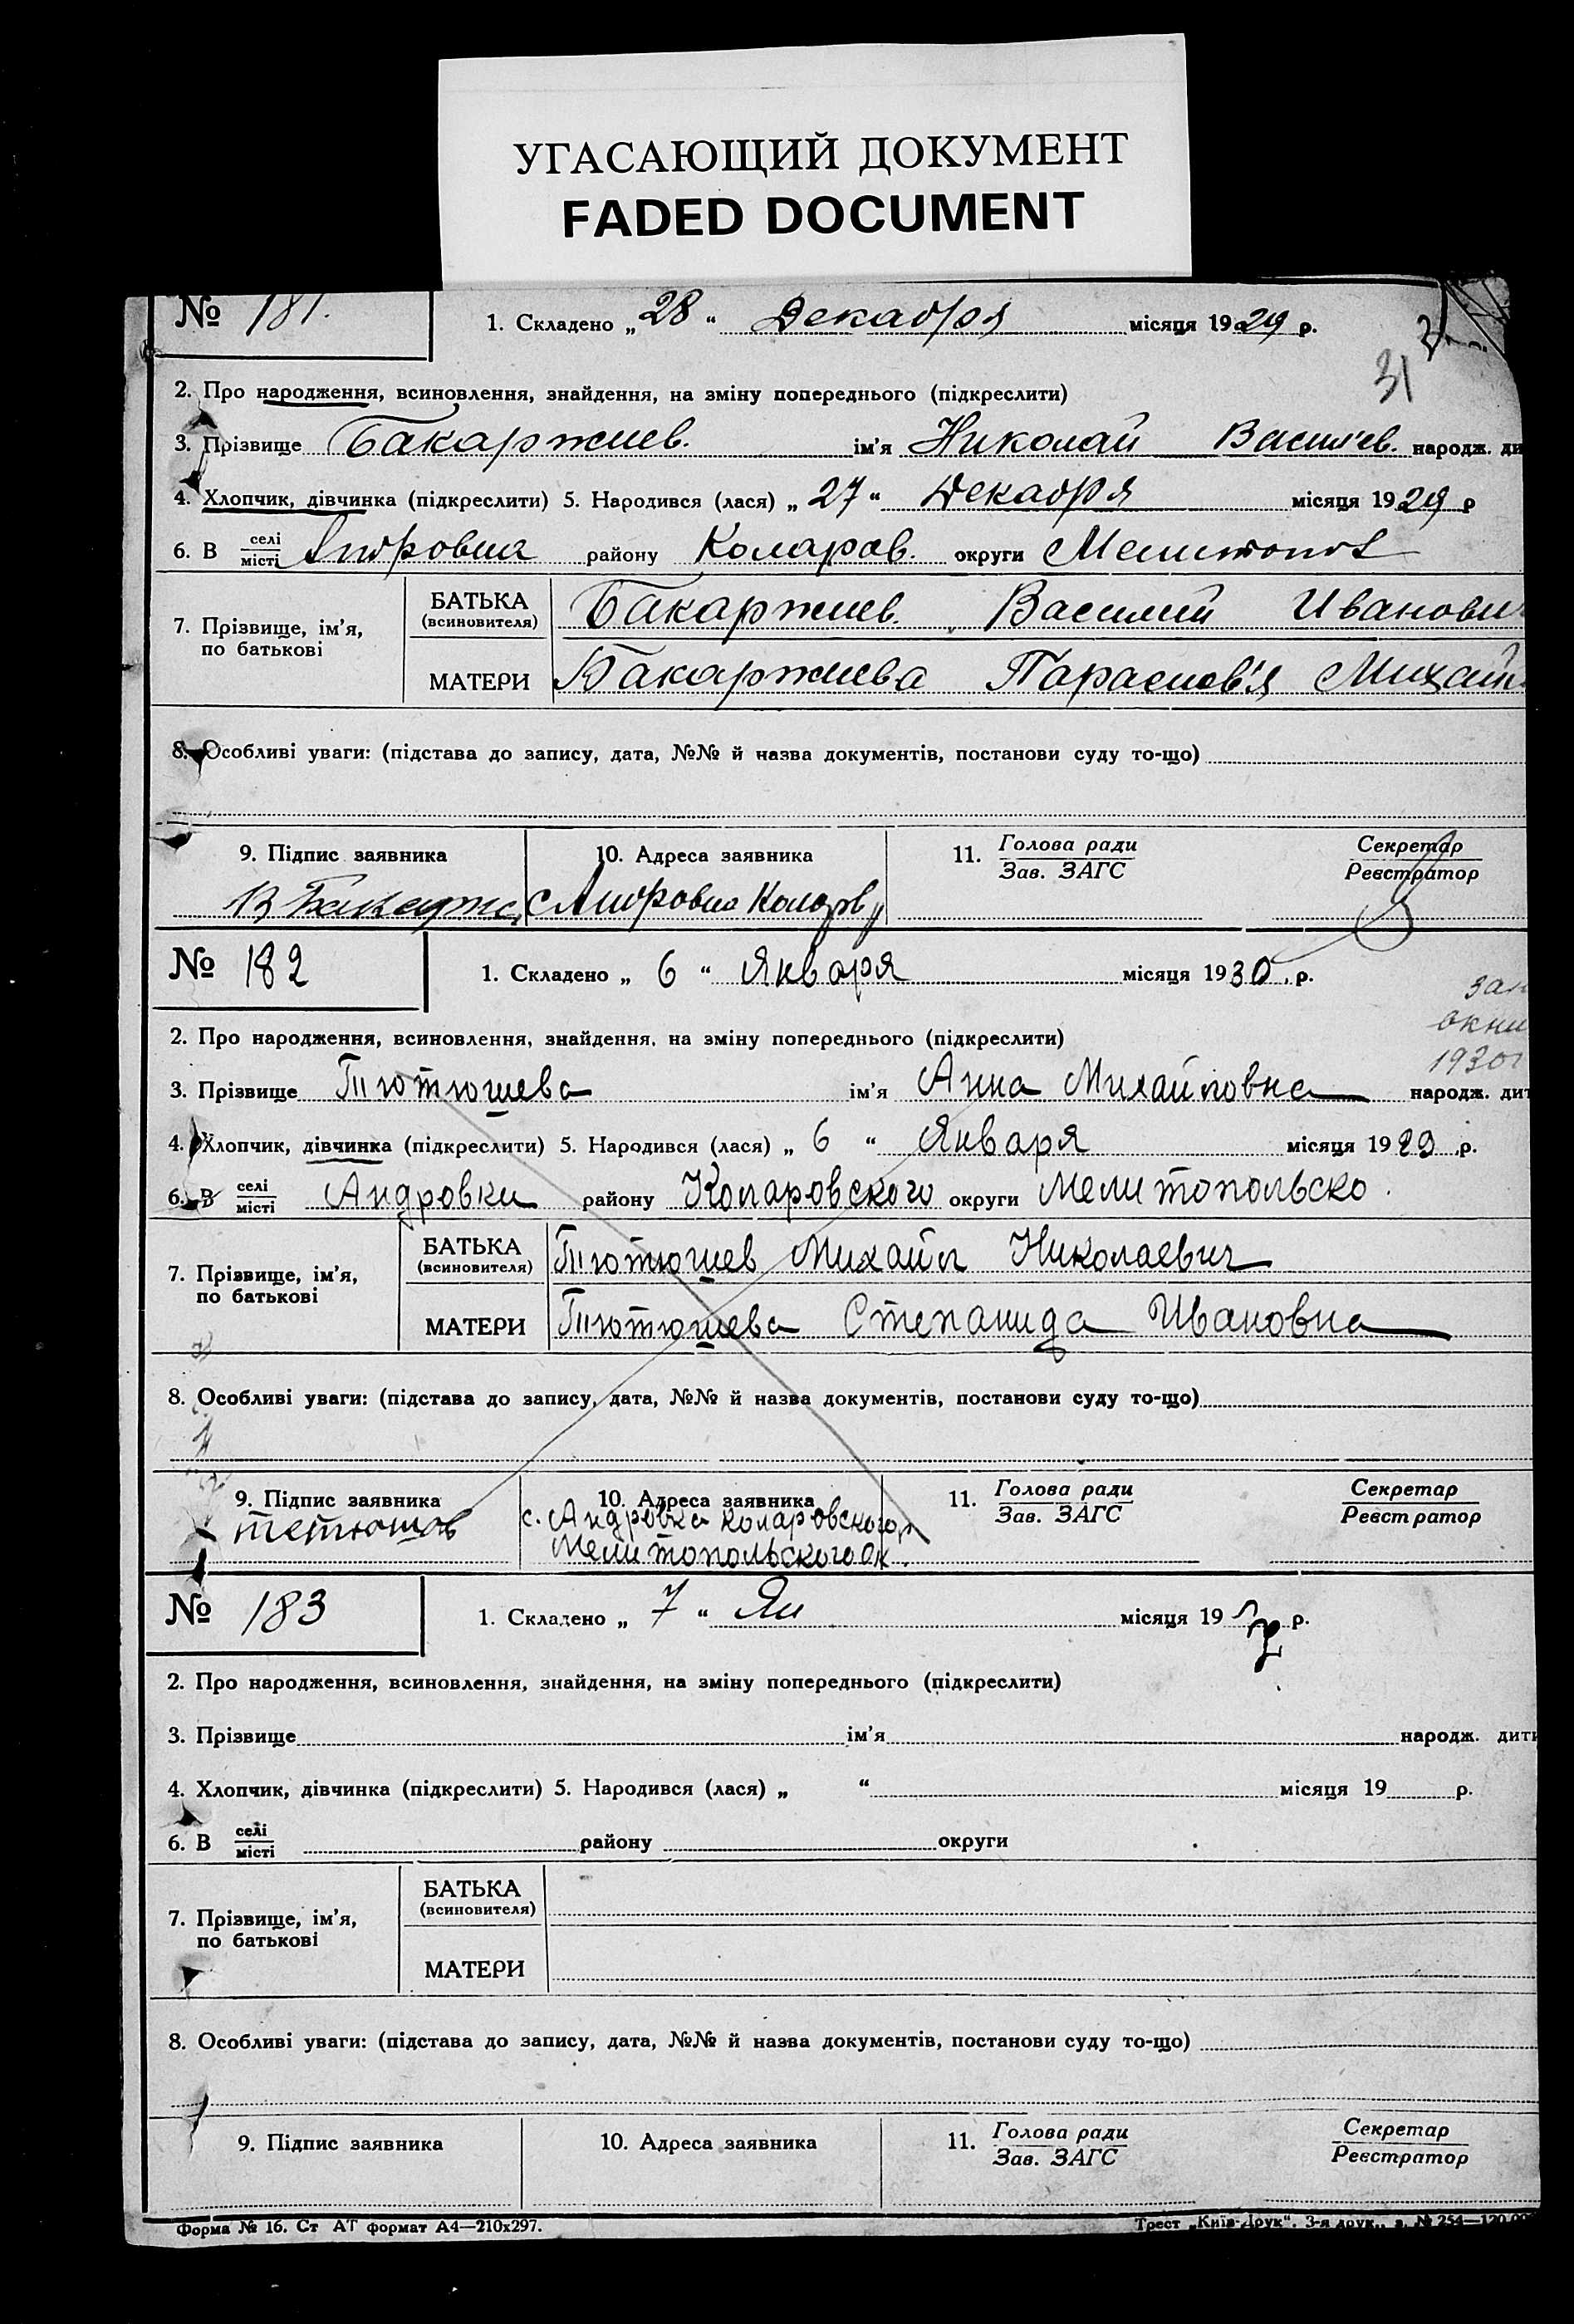 УГАСАЮЩИЙ ДОКУМЕНТ
FADED DOCUMENT
№ 181.
1. Складено „28“ Декабря місяця 1929 р.
31
2. Про народження, всиновлення, знайдення, на зміну попереднього (підкреслити)
3. Прізвище Бакаржиев. ім'я Николай Васил'ев. народж. ди
4. Хлопчик, дівчинка (підкреслити) 5. Народився (лася) „27“ Декабря місяця 1929 р
6. В селі/місті району Коларов. округи
7. Прізвище, ім'я, по батькові
БАТЬКА (всиновителя) Бакаржиев. Василий Иванович
МАТЕРИ Бакаржиева Михайл
8. Особливі уваги: (підстава до запису, дата, №№ й назва документів, постанови суду то-що)
9. Підпис заявника 10. Адреса заявника 11. Голова ради / Зав. ЗАГС Секретар / Реєстратор
№ 182
1. Складено „6“ Января місяця 1930 р.
зан
вкни
1930г
2. Про народження, всиновлення, знайдення, на зміну попереднього (підкреслити)
3. Прізвище Тютюшева ім'я Анна Михайловна народж. дит
4. Хлопчик, дівчинка (підкреслити) 5. Народився (лася) „6“ Января місяця 1929 р.
6. В селі/місті Андровки району Коларовского округи Мелитопольско
7. Прізвище, ім'я, по батькові
БАТЬКА (всиновителя) Тютюшев Михайл Николаевич
МАТЕРИ Тютюшева Степанида Ивановна
8. Особливі уваги: (підстава до запису, дата, №№ й назва документів, постанови суду то-що)
9. Підпис заявника 10. Адреса заявника 11. Голова ради / Зав. ЗАГС Секретар / Реєстратор
тетюшов с. Андровка Коларовского р
Мелитопольского ок.
№ 183
1. Складено „7“ Ян місяця 19 р.
2. Про народження, всиновлення, знайдення, на зміну попереднього (підкреслити)
3. Прізвище ім'я народж. дити
4. Хлопчик, дівчинка (підкреслити) 5. Народився (лася) „ “ місяця 19 р.
6. В селі/місті району округи
7. Прізвище, ім'я, по батькові
БАТЬКА (всиновителя)
МАТЕРИ
8. Особливі уваги: (підстава до запису, дата, №№ й назва документів, постанови суду то-що)
9. Підпис заявника 10. Адреса заявника 11. Голова ради / Зав. ЗАГС Секретар / Реєстратор
Форма № 16. Ст АТ формат А4—210х297. Трест „Київ-Друк“. 3-я друк., з. № 254—120.00